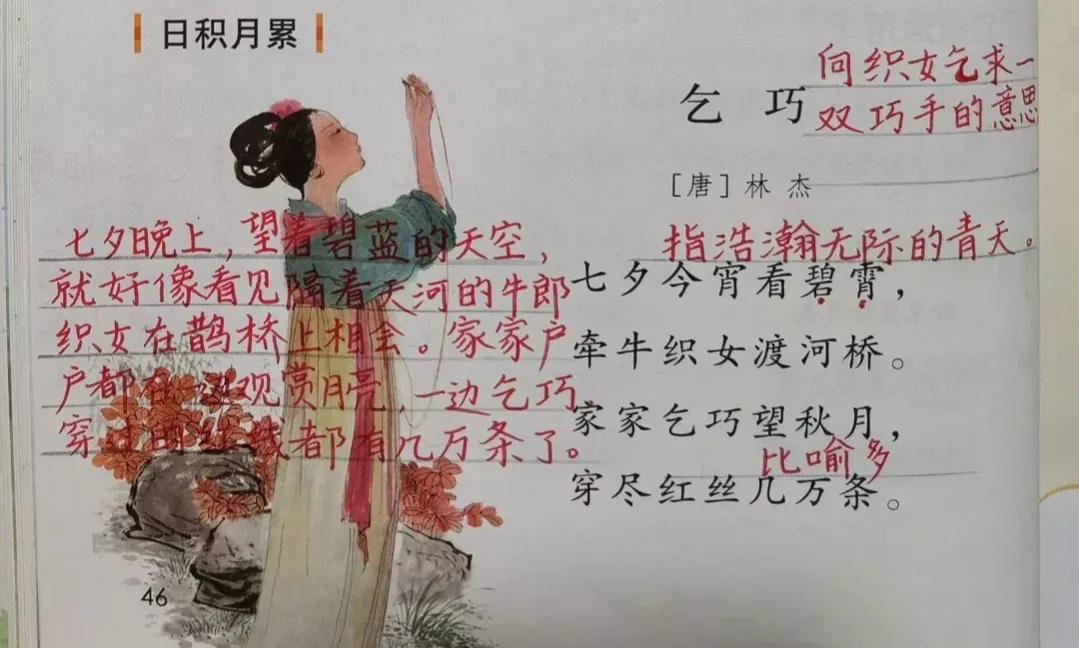 日积月累
向织女乞求一
双巧手的意思
乞巧
[唐]林杰
指浩瀚无际的青天。
七夕今宵看碧霄，
牵牛织女渡河桥。
家家乞巧望秋月，
比喻多
穿尽红丝几万条。
七夕晚上，望着碧蓝的天空，
就好像看见隔着天河的牛郎
织女在鹊桥上相会。家家户
户都在一边观赏月亮，一边乞巧
穿过的红线都有几万条了。
46